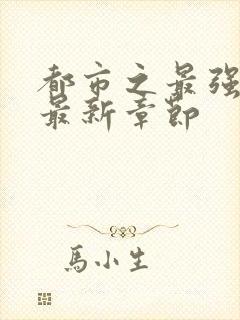 都市之最强
最新章節
馬小生